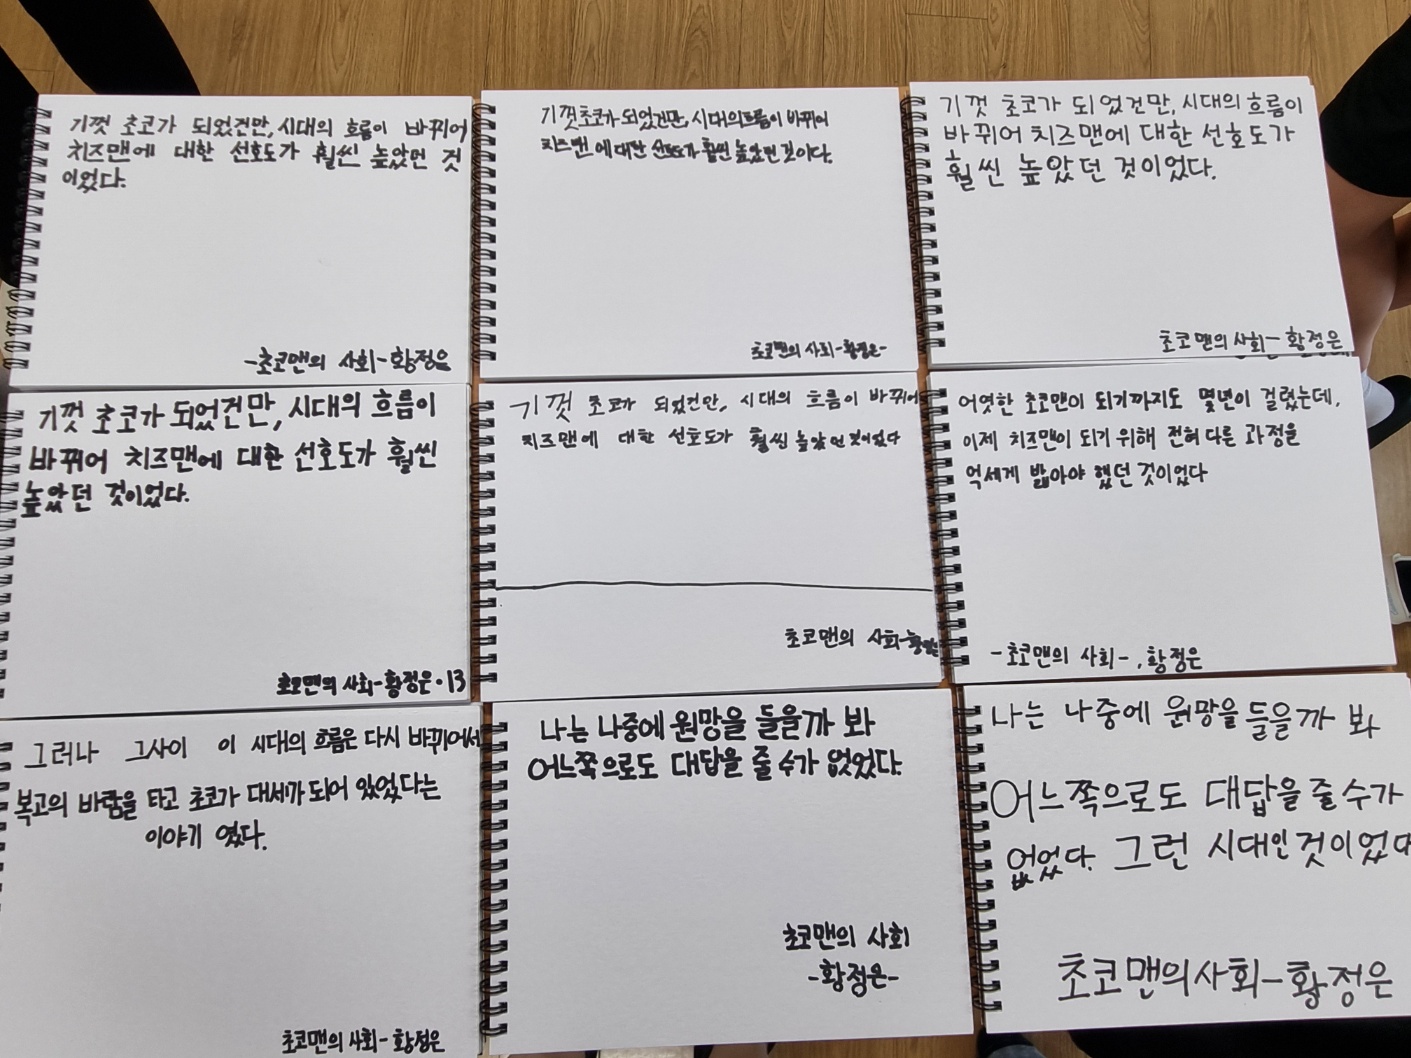 기껏 초코가 되었건만, 시대의 흐름이 바뀌어
치즈맨에 대한 선호도가 훨씬 높았던 것
이었다.
-초코맨의 사회-황정은
기껏 초코가 되었건만, 시대의 흐름이 바뀌어
치즈맨에 대한 선호도가 훨씬 높았던 것이다.
초코맨의 사회-황정은-
기껏 초코가 되었건만, 시대의 흐름이
바뀌어 치즈맨에 대한 선호도가
훨씬 높았던 것이었다.
초코맨의 사회- 황정은
기껏 초코가 되었건만, 시대의 흐름이
바뀌어 치즈맨에 대한 선호도가 훨씬
높았던 것이었다.
초코맨의 사회-황정은·13
기껏 초코가 되었건만, 시대의 흐름이 바뀌어
치즈맨에 대한 선호도가 훨씬 높았던 것이었다
초코맨의 사회-황정은
어엿한 초코맨이 되기까지도 몇년이 걸렸는데,
이제 치즈맨이 되기 위해 전혀 다른 과정을
억세게 밟아야 했던 것이었다
-초코맨의 사회-, 황정은
그러나 그사이 이 시대의 흐름은 다시 바뀌어서
복고의 바람을 타고 초코가 대세가 되어 있었다는
이야기 였다.
초코맨의 사회- 황정은
나는 나중에 원망을 들을까 봐
어느쪽으로도 대답을 줄 수가 없었다.
초코맨의 사회
-황정은-
나는 나중에 원망을 들을까 봐
어느쪽으로도 대답을 줄 수가
없었다. 그런 시대인 것이었다
초코맨의 사회-황정은